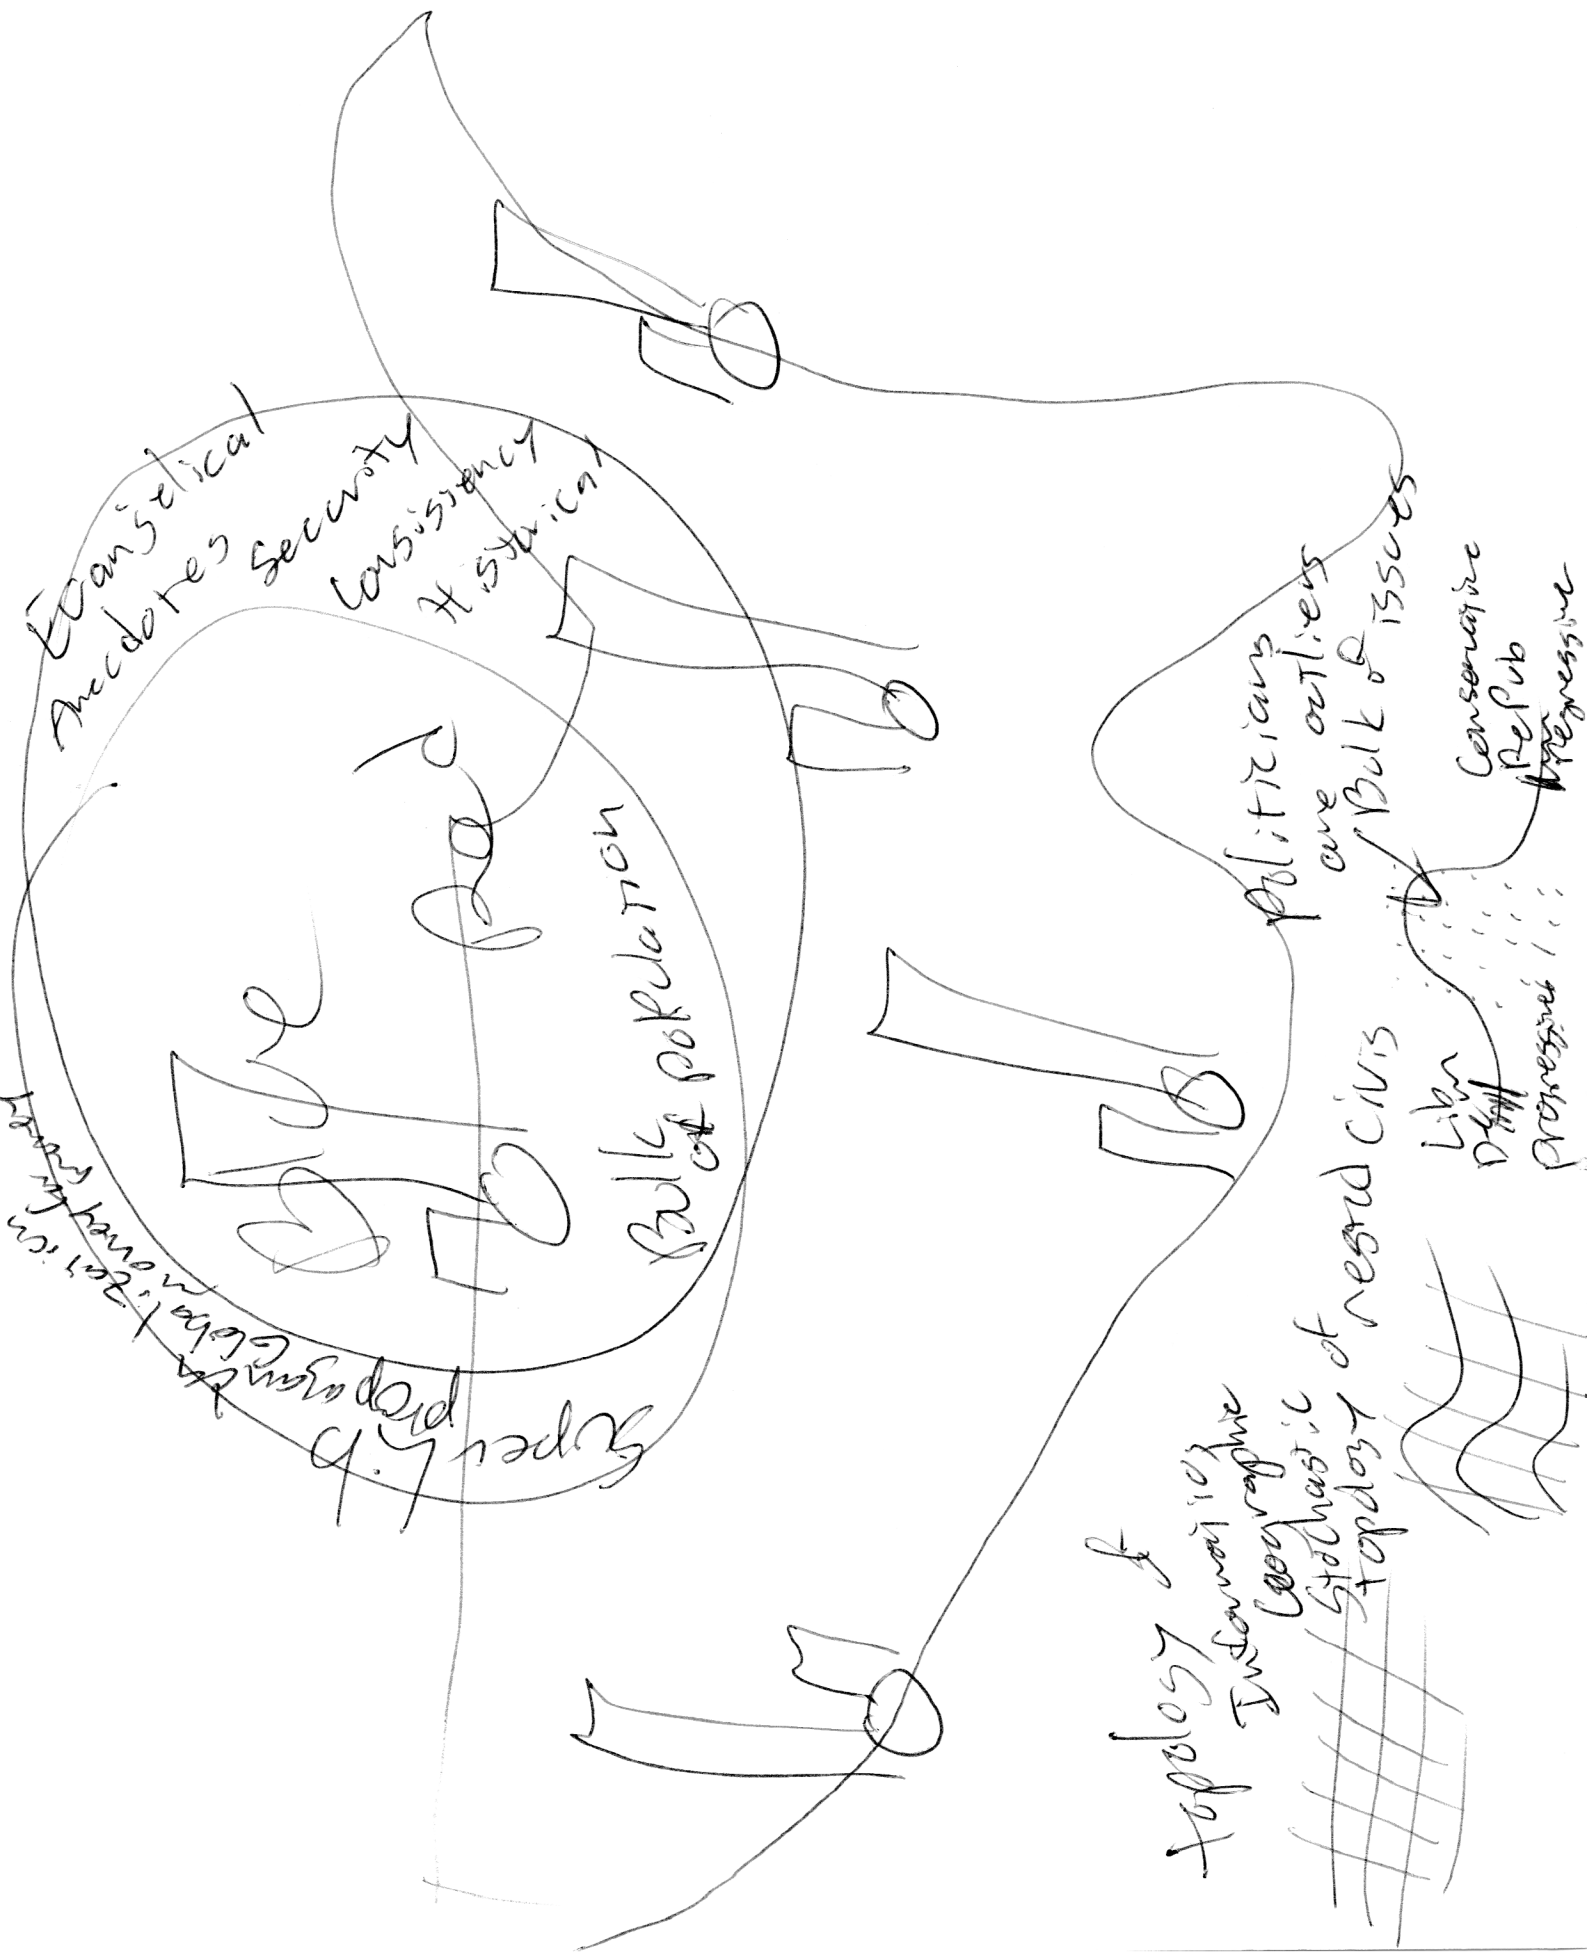 Evangelical
Anecdotes
Security
Consistency
Historical
Blue
Red
Bulk
of population
Super
Lib
propaganda
Globalization
money
Politicians
are outliers
Bulk of issues
Conservative
Repub
regressive
Lib
Dem
progressive
topology of
Informatic,
Geographic
Stochastic
topology of nested civis